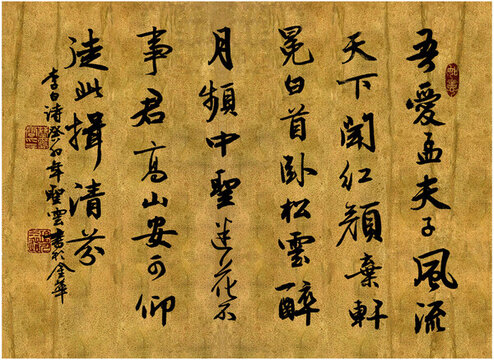 吾愛孟夫子風流
天下聞紅顏棄軒
冕白首卧松雲醉
月頻中聖迷花不
事君高山安可仰
徒此揖清芬
李白诗癸卯年聖雲書於金華